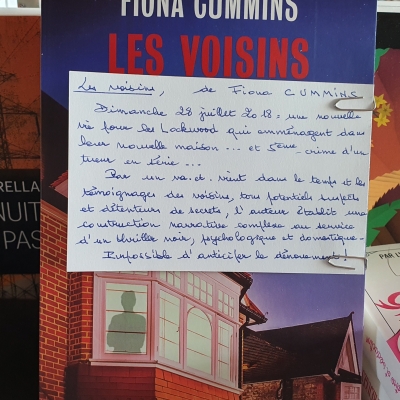 FIONA CUMMINS
LES VOISINS
Les voisins, de Fiona CUMMINS
Dimanche 28 juillet 2018 : une nouvelle
vie pour les Lockwood qui emménagent dans
leur nouvelle maison... et 5ème crime d'un
tueur en série...
Par un va-et-vient dans le temps et les
témoignages des voisins, tous potentiels suspects
et détenteurs de secrets, l'auteur établit une
construction narrative complexe au service
d'un thriller noir, psychologique et domestique.
Impossible d'anticiper le dénouement !
RELLA
NUIT
PAS
PAR L'